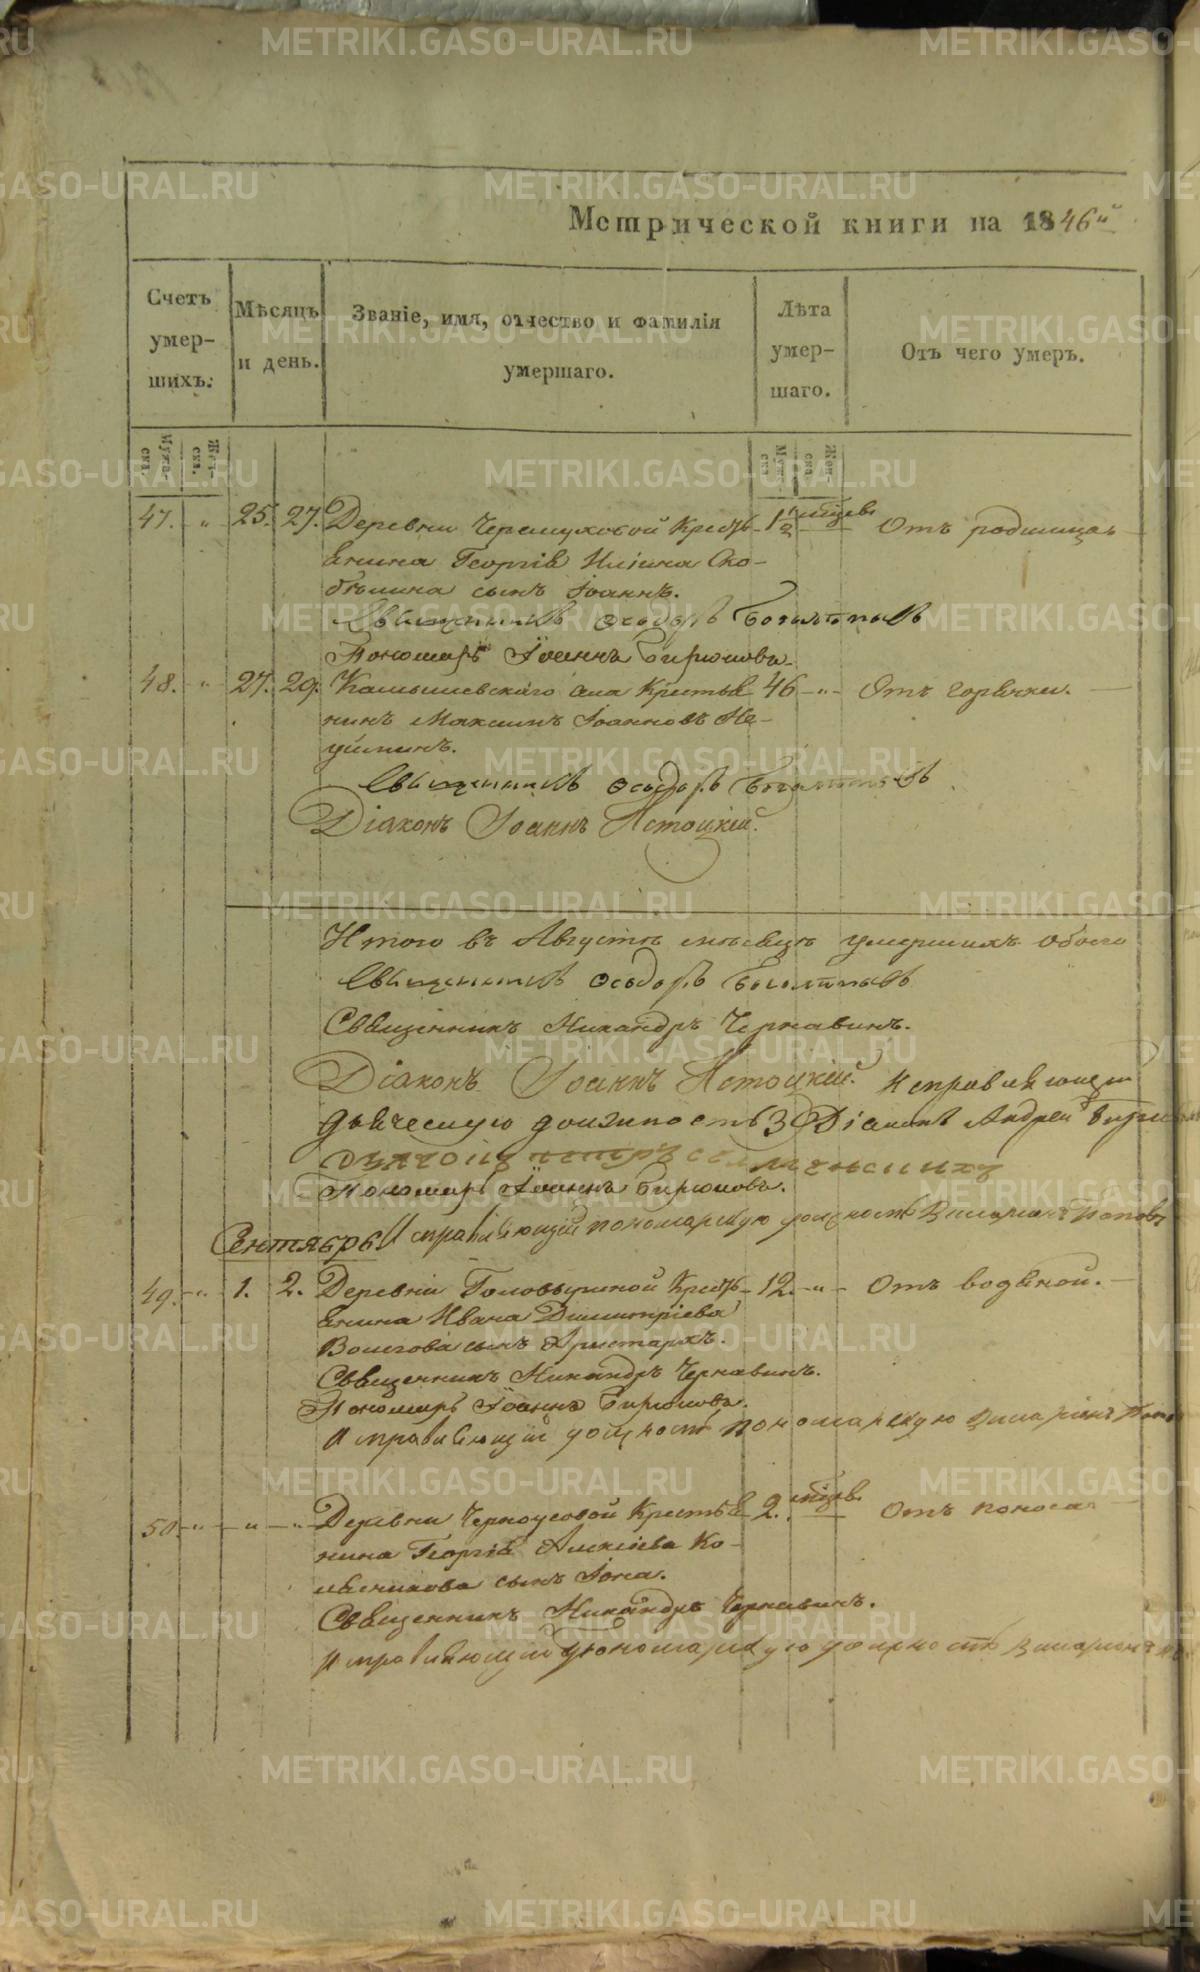 Метрической книги на 1846й
Счетъ умершихъ.
Мѣсяцъ и день.
Званіе, имя, отчество и фамилія умершаго.
Лѣта умершаго.
Отъ чего умеръ.
Мужеска.
Женска.
Мужеска
Женска.
47. " 25. 27. Деревни Черемуховой Кресть- 1 1/2 мѣсяц. Отъ родимца
янина Георгія Иліина Ско-
былина сынъ Іоаннъ.
Священникъ Ѳеодоръ
Пономарь Іоаннъ Бирюковъ.
48. " 27. 29. Камышевскаго села Крестья 46 " Отъ горячки.
нинъ Максимъ Іоанновъ Не-
уйминъ.
Священникъ Ѳеодоръ
Діаконъ Іоаннъ Истоцкій.
Итого въ Августѣ мѣсяцѣ умершихъ обоего
Священникъ Ѳеодоръ
Священникъ Никандръ Чернавинъ.
Діаконъ Іоаннъ Истоцкій. Исправляющій
дьяческую должность Діаконъ Андрей
Пономарь Іоаннъ Бирюковъ.
Исправляющій пономарскую должность Иларіонъ Поповъ
Сентябрь
49. " 1. 2. Деревни Головыриной Кресть- 12. " Отъ водяной.
янина Ивана Димитріева
Волегова сынъ Аристархъ.
Священникъ Никандръ Чернавинъ.
Пономарь Іоаннъ Бирюковъ.
Исправляющій должность пономарскую Иларіонъ
50. " " " Деревни Черноусовой Крестья 2. мѣсяц. Отъ поноса
нина Георгія Алексіева Ко-
жевникова сынъ Іона.
Священникъ Никандръ Чернавинъ.
Исправляющій пономарскую должность Иларіонъ
METRIKI.GASO-URAL.RU